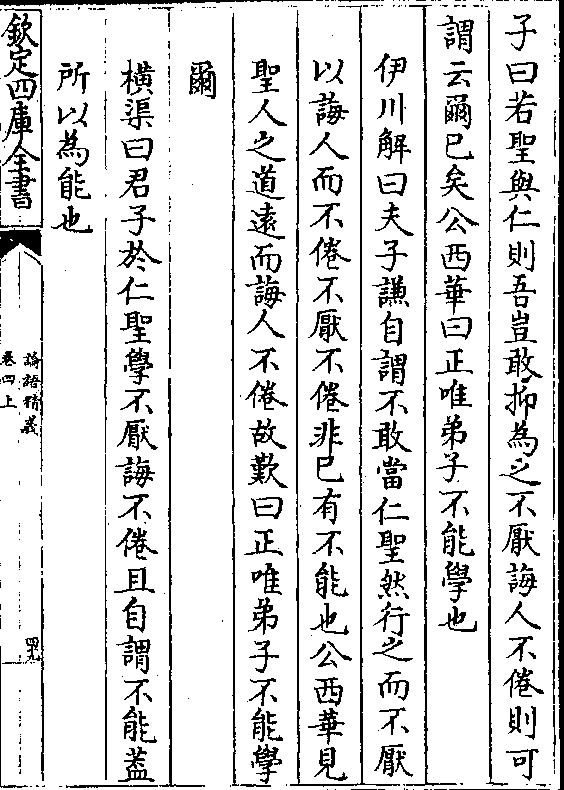 子曰若聖與仁則吾豈敢抑為之不厭誨人不倦則可
謂云爾已矣公西華曰正唯弟子不能學也
伊川解曰夫子謙自謂不敢當仁聖然行之而不厭
以誨人而不倦不厭不倦非已有不能也公西華見
聖人之道遠而誨人不倦故歎曰正唯弟子不能學
爾
橫渠曰君子於仁聖學不厭誨不倦且自謂不能葢
所以為能也
欽定四庫全書
論語精義
卷四上
四九